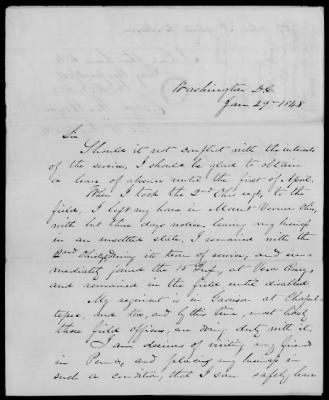 Washington D.C.
Jan 29th 1848
Sir
Should it not conflict with the interests
of the service, I should be glad to obtain
a leave of absence until the first of April.
When I took the 2nd Ohio regt, to the
field, I left my home in Mount Vernon Ohio,
with but three days notice, leaving my business
in an unsettled state, I remained with the
2nd Ohio, during its term of service, and im-
mediately joined the 15 Inf, at Vera Cruz,
and remained in the field until disabled.
My regiment is in Garrison at Chapul-
tepec, and two, and by this time, most likely
three field officers, are doing duty with it.
I am desirous of visiting my friends
in Penna, and placing my business in
such a condition, that I can safely leave